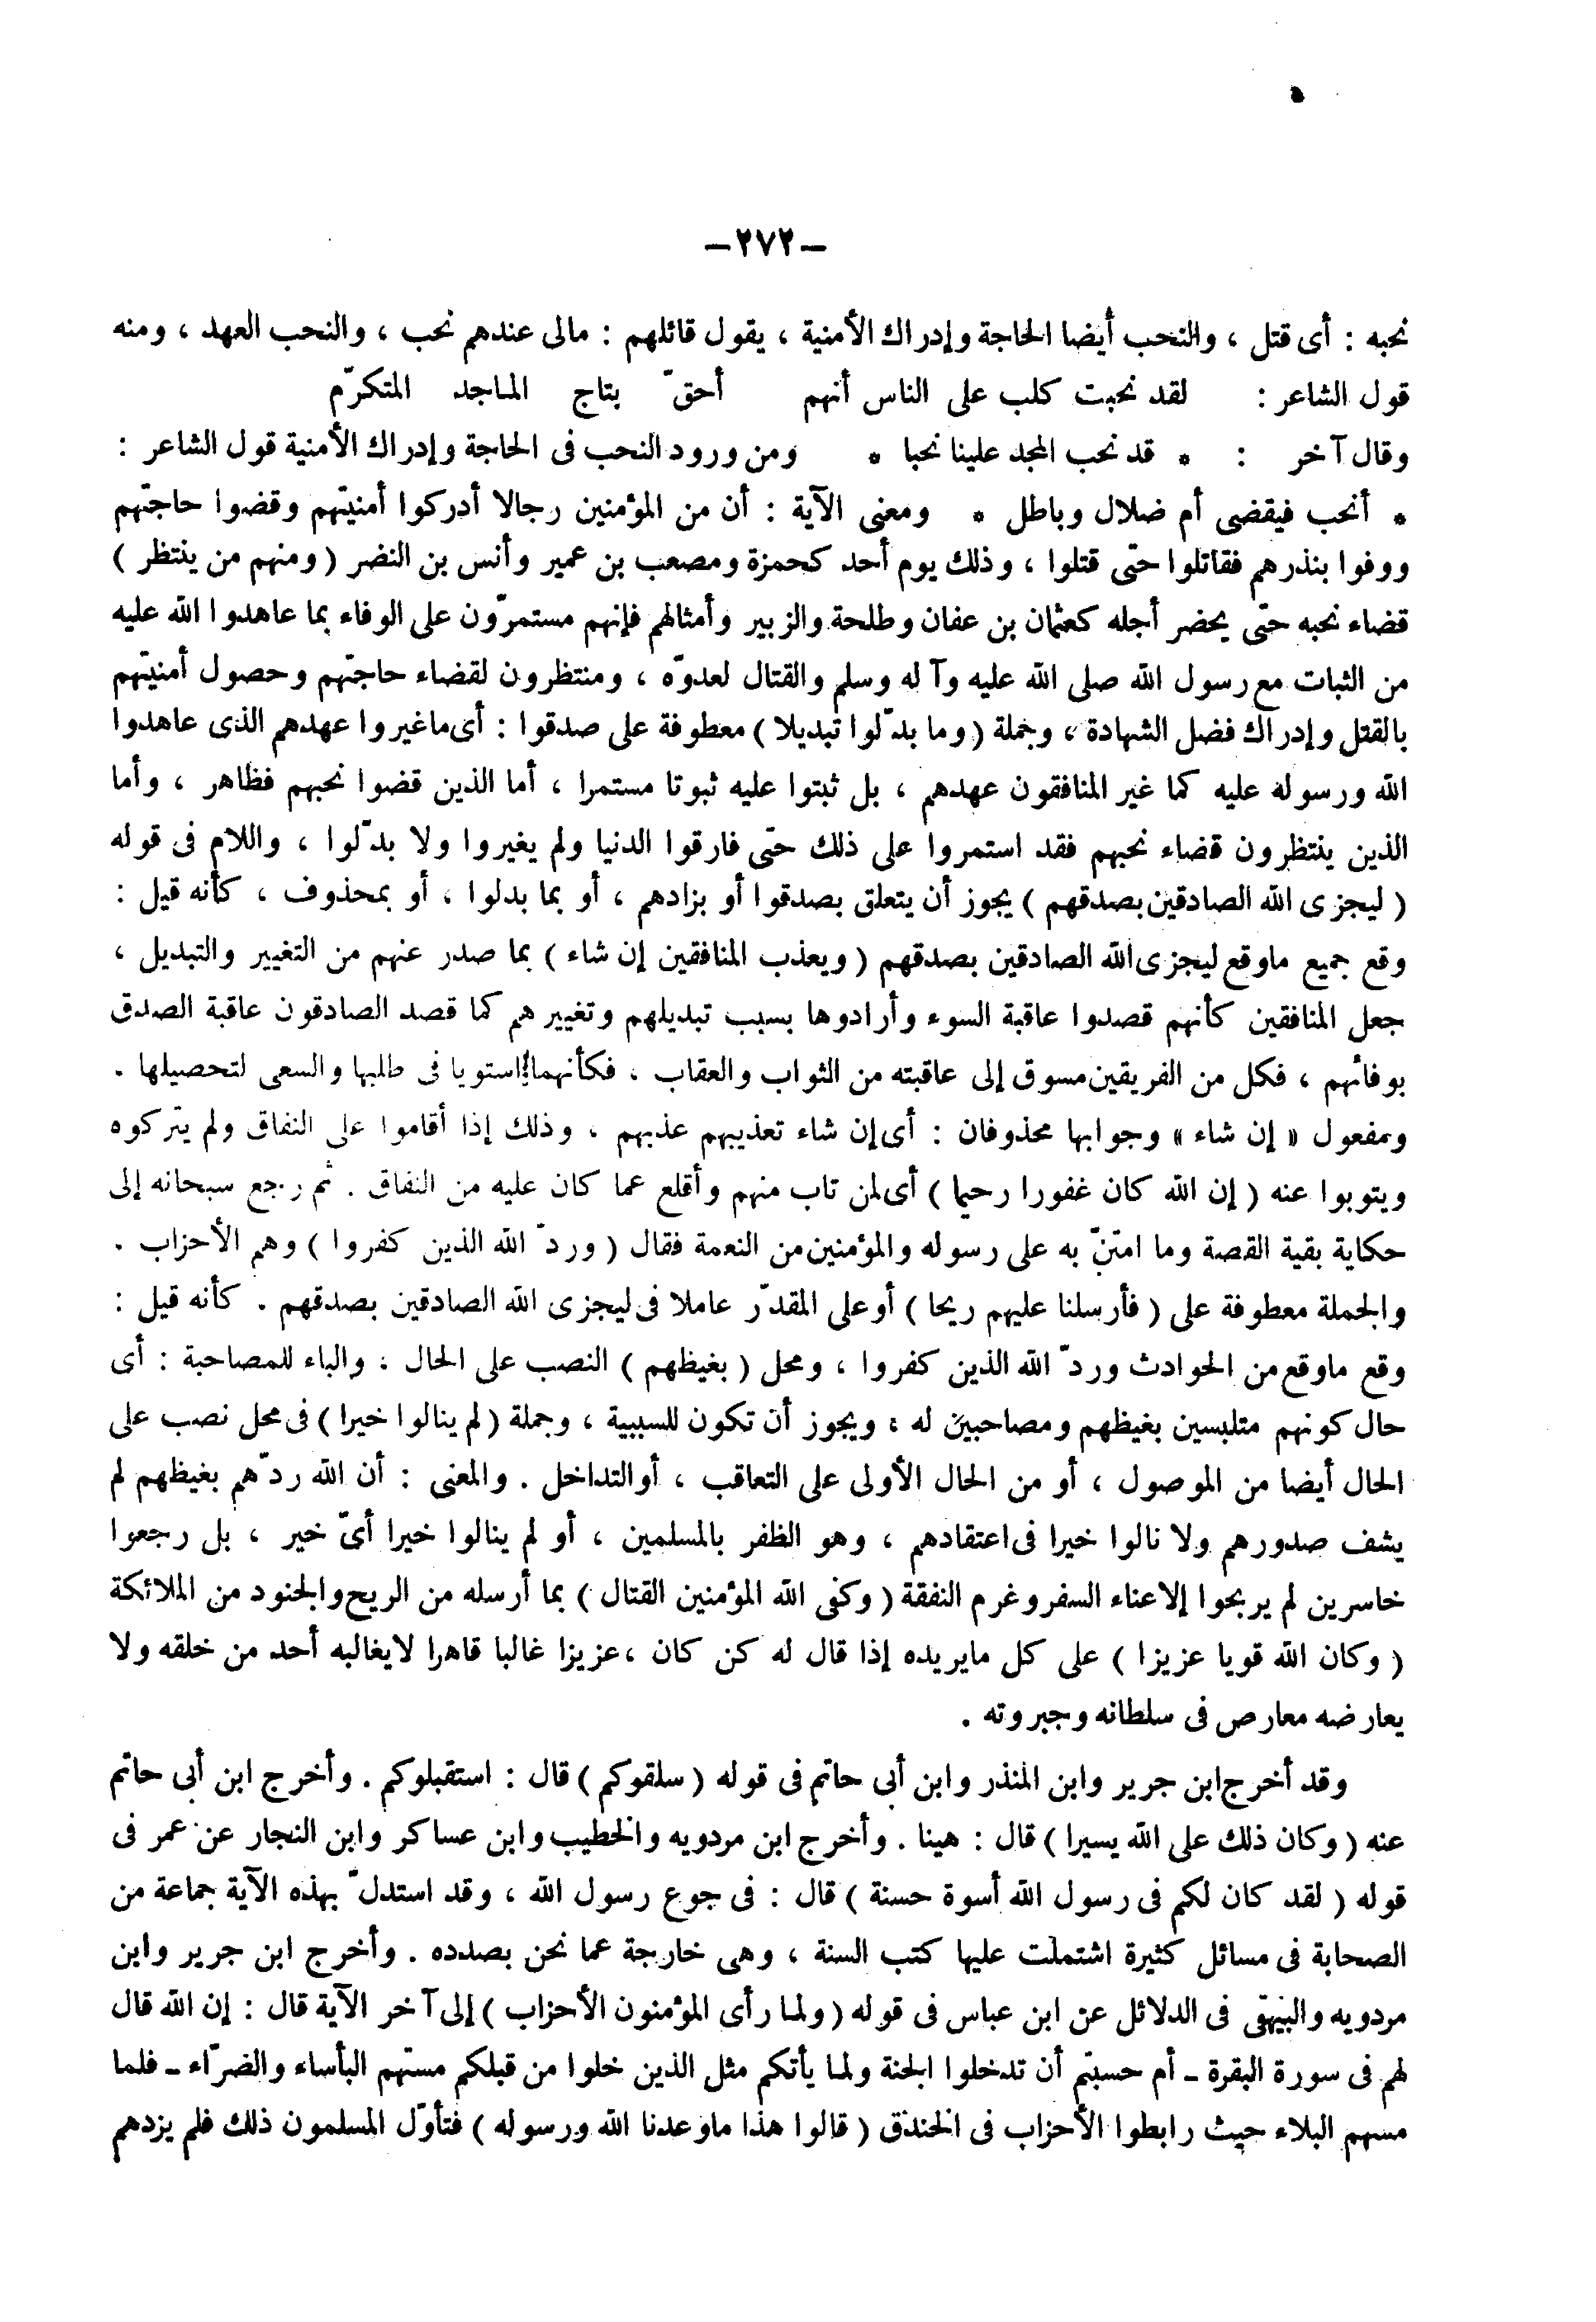 -٢٧٢-
نحبه : أى قتل ، والنحب أيضا الحاجة وإدراك الأمنية ، يقول قائلهم : مالى عندهم نحب ، والنحب العهد ، ومنه
قول الشاعر : لقد نحبت كلب على الناس أنهم أحقّ بتاج الماجد المتكرّم
وقال آخر : * قد نحب المجد علينا نحبا * ومن ورود النحب فى الحاجة وإدراك الأمنية قول الشاعر :
* أنحب فيقضى أم ضلال وباطل * ومعنى الآية : أن من المؤمنين رجالا أدركوا أمنيتهم وقضوا حاجتهم
ووفوا بنذرهم فقاتلوا حتى قتلوا ، وذلك يوم أحد كحمزة ومصعب بن عمير وأنس بن النضر ( ومنهم من ينتظر )
قضاء نحبه حتى يحضر أجله كعثمان بن عفان وطلحة والزبير وأمثالهم فإنهم مستمرّون على الوفاء بما عاهدوا الله عليه
من الثبات مع رسول الله صلى الله عليه وآله وسلم والقتال لعدوّه ، ومنتظرون لقضاء حاجتهم وحصول أمنيتهم
بالقتل وإدراك فضل الشهادة ، وجملة ( وما بدّلوا تبديلا ) معطوفة على صدقوا : أى ماغيروا عهدهم الذى عاهدوا
الله ورسوله عليه كما غير المنافقون عهدهم ، بل ثبتوا عليه ثبوتا مستمرا ، أما الذين قضوا نحبهم فظاهر ، وأما
الذين ينتظرون قضاء نحبهم فقد استمروا على ذلك حتى فارقوا الدنيا ولم يغيروا ولا بدّلوا ، واللام فى قوله
( ليجزى الله الصادقين بصدقهم ) يجوز أن يتعلق بصدقوا أو بزادهم ، أو بما بدلوا ، أو بمحذوف ، كأنه قيل :
وقع جميع ماوقع ليجزى الله الصادقين بصدقهم ( ويعذب المنافقين إن شاء ) بما صدر عنهم من التغيير والتبديل ،
جعل المنافقين كأنهم قصدوا عاقبة السوء وأرادوها بسبب تبديلهم وتغييرهم كما قصد الصادقون عاقبة الصدق
بوفائهم ، فكل من الفريقين مسوق إلى عاقبته من الثواب والعقاب ، فكأنهما استويا فى طلبها والسعى لتحصيلها .
ومفعول « إن شاء » وجوابها محذوفان : أى إن شاء تعذيبهم عذبهم ، وذلك إذا أقاموا على النفاق ولم يتركوه
ويتوبوا عنه ( إن الله كان غفورا رحيما ) أى لمن تاب منهم وأقلع عما كان عليه من النفاق . ثم رجع سبحانه إلى
حكاية بقية القصة وما امتنّ به على رسوله والمؤمنين من النعمة فقال ( وردّ الله الذين كفروا ) وهم الأحزاب .
والجملة معطوفة على ( فأرسلنا عليهم ريحا ) أو على المقدّر عاملا فى ليجزى الله الصادقين بصدقهم . كأنه قيل :
وقع ماوقع من الحوادث وردّ الله الذين كفروا ، ومحل ( بغيظهم ) النصب على الحال ، والباء للمصاحبة : أى
حال كونهم متلبسين بغيظهم ومصاحبين له ، ويجوز أن تكون للسببية ، وجملة ( لم ينالوا خيرا ) فى محل نصب على
الحال أيضا من الموصول ، أو من الحال الأولى على التعاقب ، أو التداخل . والمعنى : أن الله ردّهم بغيظهم لم
يشف صدورهم ولا نالوا خيرا فى اعتقادهم ، وهو الظفر بالمسلمين ، أو لم ينالوا خيرا أىّ خير ، بل رجعوا
خاسرين لم يربحوا إلا عناء السفر وغرم النفقة ( وكفى الله المؤمنين القتال ) بما أرسله من الريح والجنود من الملائكة
( وكان الله قويا عزيزا ) على كل مايريده إذا قال له كن كان ، عزيزا غالبا قاهرا لايغالبه أحد من خلقه ولا
يعارضه معارص فى سلطانه وجبروته .
وقد أخرج ابن جرير وابن المنذر وابن أبى حاتم فى قوله ( سلقوكم ) قال : استقبلوكم . وأخرج ابن أبى حاتم
عنه ( وكان ذلك على الله يسيرا ) قال : هينا . وأخرج ابن مردويه والخطيب وابن عساكر وابن النجار عن عمر فى
قوله ( لقد كان لكم فى رسول الله أسوة حسنة ) قال : فى جوع رسول الله ، وقد استدلّ بهذه الآية جماعة من
الصحابة فى مسائل كثيرة اشتملت عليها كتب السنة ، وهى خارجة عما نحن بصدده . وأخرج ابن جرير وابن
مردويه والبيهقى فى الدلائل عن ابن عباس فى قوله ( ولما رأى المؤمنون الأحزاب ) إلى آخر الآية قال : إن الله قال
لهم فى سورة البقرة - أم حسبتم أن تدخلوا الجنة ولما يأتكم مثل الذين خلوا من قبلكم مستهم البأساء والضرّاء - فلما
مسهم البلاء حيث رابطوا الأحزاب فى الخندق ( قالوا هذا ماوعدنا الله ورسوله ) فتأوّل المسلمون ذلك فلم يزدهم